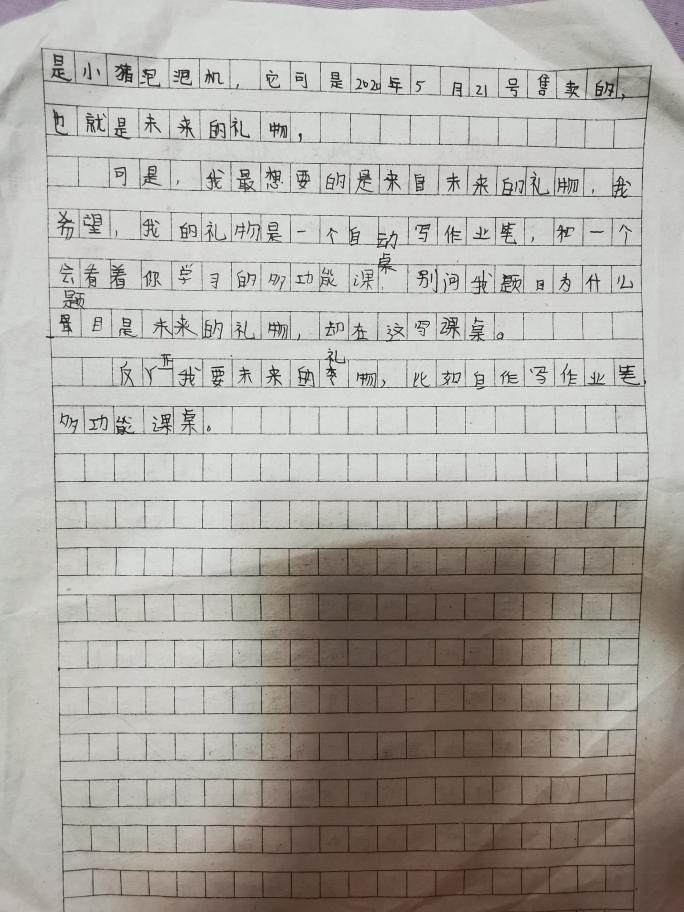 是小猪泡泡机，它可是2020年5月21号售卖的，
也就是未来的礼物，
可是，我最想要的是来自未来的礼物，我
希望，我的礼物是一个自动写作业笔，和一个
会看着你学习的多功能课桌，别问我题目为什么
题目是未来的礼物，却在这写课桌。
反正我要未来的礼物，比如自作写作业笔，
多功能课桌。